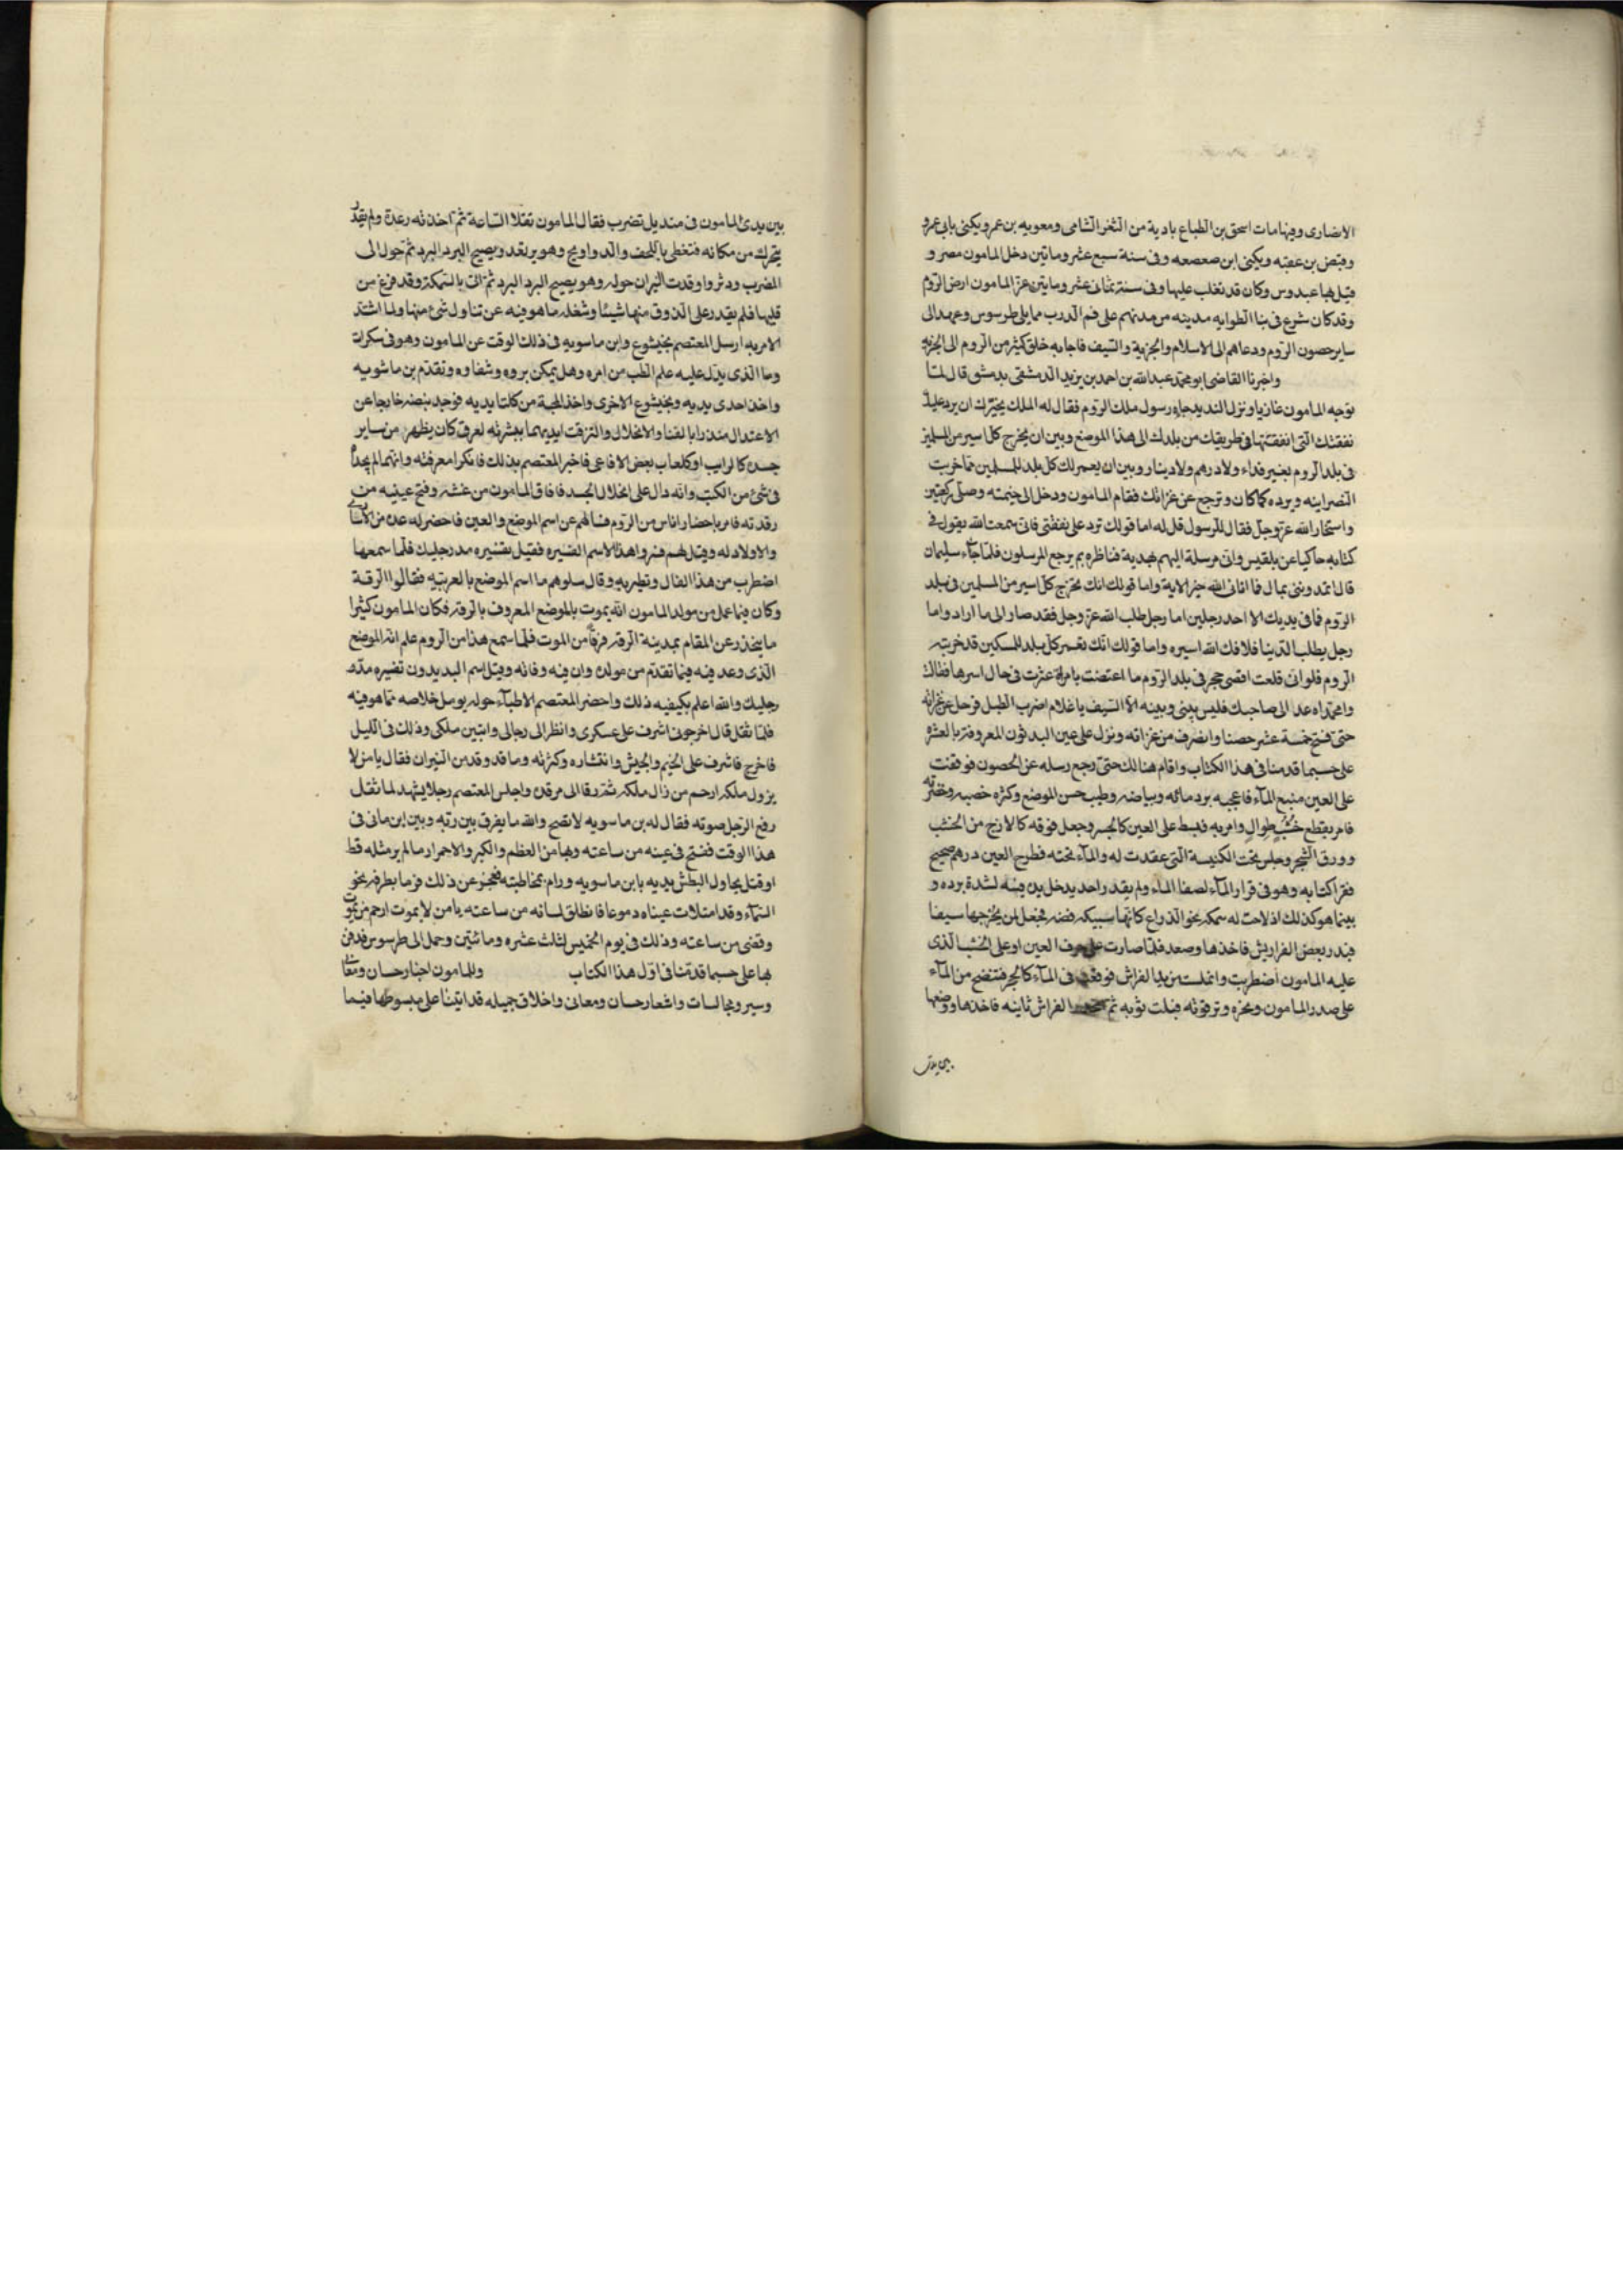 الانصارى وفيها مات اسحق بن الطباع بادية من الثغر الشامى ومعويه بن عمر ويكنى بابى عمرو
وقبض بن عقبه ويكنى ابن صعصعه وفى سنة سبع عشر وماتين دخل المامون مصر و
قتل بها عبدوس وكان قد تغلب عليها وفى سنة ثمانى عشر وماتين غزا المامون ارض الروم
وقد كان شرع فى بنا الطوانه مدينه من مدنهم على فم الدرب مما يلى طرسوس وعمد الى
ساير حصون الروم ودعاهم الى الاسلام والجزية والسيف فاجابه خلق كثير من الروم الى الجزيه
واخبرنا القاضى ابو محمد عبد الله بن احمد بن يزيد الدمشقى بدمشق قال لما
توجه المامون غازيا ونزل البديدون جاءه رسول ملك الروم فقال له الملك يخيرك ان يرد عليك
نفقتك التى انفقتها فى طريقك من بلدك الى هذا الموضع وبين ان يخرج كل اسير من المسلمين
فى بلد الروم بغير فداء ولا درهم ولا دينار وبين ان يعمر لك كل بلد للمسلمين مما خربت
النصرانيه ويرده كما كان وترجع عن غزاتك فقام المامون ودخل الى خيمته وصلى ركعتين
واستخار الله عز وجل فقال للرسول قل له اما قولك ترد على نفقتى فانى سمعت الله يقول فى
كتابه حاكيا عن بلقيس وانى مرسلة اليهم بهدية فناظره بم يرجع المرسلون فلما جاء سليمان
قال اتمدوننى بمال فما اتانى الله خير الاية واما قولك انك تخرج كل اسير من المسلمين فى بلد
الروم فما فى يديك الا احد رجلين اما رجل طلب الله عز وجل فقد صار الى ما اراد واما
رجل يطلب الدنيا فلا فك الله اسيره واما قولك انك تعمر كل بلد للمسكين قد خربته
الروم فلو انى قلعت اقصى حجر فى بلد الروم ما اعتضت بامراة عثرت فى حال اسرها فقالت
وامحمداه عد الى صاحبك فليس بينى وبينه الا السيف يا غلام اضرب الطبل فرحل عن غزاته
حتى فتح خمسة عشر حصنا وانصرف من غزاته ونزل على عين البديدون المعروفة بالعشره
على حسبما قدمنا فى هذا الكتاب واقام هنالك حتى رجع رسله عن الحصون فوقفت
على العين منبع المآء فاعجبه برد مائه وبياضه وطيب حسن الموضع وكثره خصبه وخضرته
فامر بقطع خشب طوال وامر به فبسط على العين كالجسر وجعل فوقه كالازج من الخشب
وورق الشجر وجلس تحت الكنيسة التى عقدت له والمآء تحته فطرح العين درهم صحيح
فقرا كتابه وهو فى قرار المآء لصفا الماء ولم يقدر احد يدخل يده فيه لشدة برده و
بينما هو كذلك اذ لاحت له سمكه نحو الذراع كانها سبيكه فضه فجعل لمن يخرجها سيفا
فبدر بعض الفراريش فاخذها وصعد فلما صارت على حرف العين او على الخشب الذى
عليه المامون اضطربت وانملست من يد الفراش فوقعت فى المآء كالحجر فنضح من المآء
على صدر المامون ونحره وترقوته فبلت ثوبه ثم انحدر الفراش ثانيه فاخذها ووضعها
بين يدى
بين يدى المامون فى منديل تضرب فقال المامون تقلا الساعة ثم اخذته رعدة ولم يقدر
يتحرك من مكانه فتغطى باللحف والدواويج وهو يرتعد ويصيح البرد البرد ثم حول الى
المضرب ودثر واوقدت النيران حوله وهو يصيح البرد البرد ثم اتى بالسمكة وقد فرغ من
قليها فلم يقدر على الذوق منها شيئا وشغله ما هو فيه عن تناول شئ منها ولما اشتد
الامر به ارسل المعتصم بختيشوع وابن ماسويه فى ذلك الوقت عن المامون وهو فى سكرات
وما الذى يدل عليه علم الطب من امره وهل يمكن بروه وشفاوه وتقدم بن ماسويه
واخذ احدى يديه وبختيشوع الاخرى واخذ المجبة من كلتا يديه فوجد نبضه خارجا عن
الاعتدال منذرا بالفنا والانحلال والتزقت ايديهما ببشرته لعرق كان يظهر من ساير
جسده كالرايب او كلعاب بعض الافاعى فاخبر المعتصم بذلك فانكرا معرفته وانهما لم يجداه
فى شئ من الكتب وانه دال على انحلال الجسد فافاق المامون من غشه وفتح عينيه من
رقدته فامر باحضار اناس من الروم فسالهم عن اسم الموضع والعين فاحضر له عده من الاسارى
والاولاد له وقيل لهم فسروا هذا الاسم القشيره فقيل تفسيره مد رجليك فلما سمعها
اضطرب من هذا الفال وتطير به وقال سلوهم ما اسم الموضع بالعربيه فقالوا الرقة
وكان فيما عمل من مولد المامون انه يموت بالموضع المعروف بالرقه فكان المامون كثيرا
ما يتحذر عن المقام بمدينة الرقه فرقا من الموت فلما سمع هذا من الروم علم انه الموضع
الذى وعد فيه فيما تقدم من مولده وان فيه وفاته وقيل اسم البديدون تفسيره مد
رجليك والله اعلم بكيفيه ذلك واحضر المعتصم الاطبآء حوله يومل خلاصه مما هو فيه
فلما ثقل قال اخرجونى اشرف على عسكرى وانظر الى رجالى واتبين ملكى وذلك فى الليل
فاخرج فاشرف على الخيم والجيش وانتشاره وكثرته وما قد وقد من النيران فقال يا من لا
يزول ملكه ارحم من زال ملكه ثم رد الى مرقده واجلس المعتصم رجلا يشهد لما ثقل
رفع الرجل صوته فقال له بن ماسويه لا تصح والله ما يفرق بين ربه وبين ابن مانى فى
هذا الوقت ففتح فى عينه من ساعته وبها من العظم والكبر والاحمرار ما لم ير مثله قط
اوقتل يحاول البطش بيديه بابن ماسويه ورام مخاطبته فعجز عن ذلك فرما بطرفه نحو
السمآء وقد امتلات عيناه دموعا فانطلق لسانه من ساعته يا من لا يموت ارحم من يموت
وقضى من ساعته وذلك فى يوم الخميس لثلث عشره وماتين وحمل الى طرسوس فدفن
بها على حسبما قدمنا فى اول هذا الكتاب وللمامون اخبار حسان ومعان
وسير ومجالسات واشعار حسان ومعانى واخلاق جميله قد اتينا على مبسوطها فيما